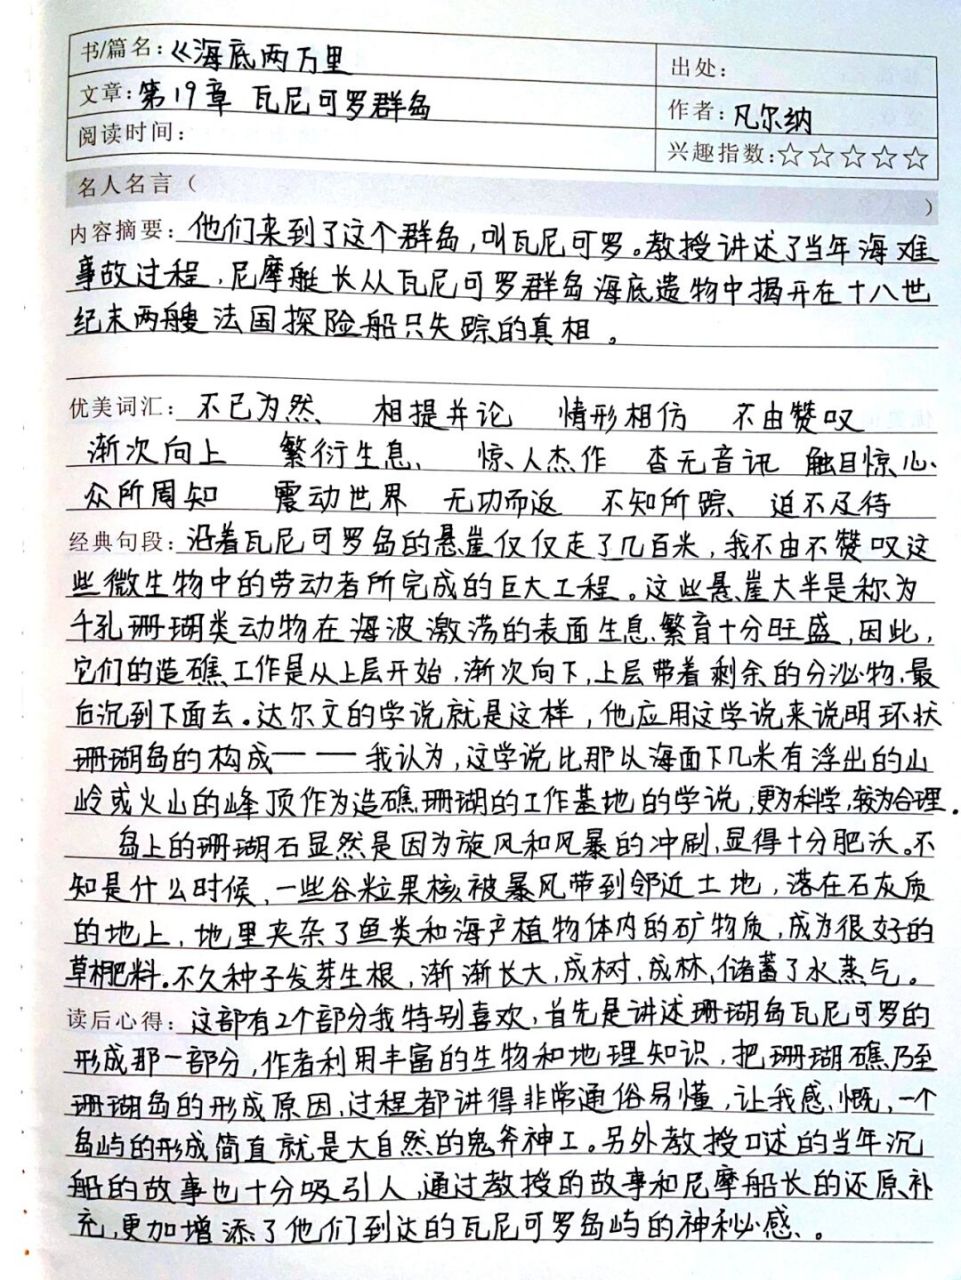 书/篇名：《海底两万里
出处：
文章：第19章 瓦尼可罗群岛
作者：凡尔纳
阅读时间：
兴趣指数：☆☆☆☆☆
名人名言（ ）
内容摘要：他们来到了这个群岛，叫瓦尼可罗。教授讲述了当年海难
事故过程，尼摩艇长从瓦尼可罗群岛海底遗物中揭开在十八世
纪末两艘法国探险船只失踪的真相。
优美词汇：不已为然 相提并论 情形相仿 不由赞叹
渐次向上 繁衍生息 惊人杰作 杳无音讯 触目惊心
众所周知 震动世界 无功而返 不知所踪 迫不及待
经典句段：沿着瓦尼可罗岛的悬崖仅仅走了几百米，我不由不赞叹这
些微生物中的劳动者所完成的巨大工程。这些悬崖大半是称为
千孔珊瑚类动物在海波激荡的表面生息、繁育十分旺盛，因此，
它们的造礁工作是从上层开始，渐次向下，上层带着剩余的分泌物，最
后沉到下面去。达尔文的学说就是这样，他应用这学说来说明环状
珊瑚岛的构成——我认为，这学说比那以海面下几米有浮出的山
岭或火山的峰顶作为造礁珊瑚的工作基地的学说，更为科学，较为合理。
岛上的珊瑚石显然是因为旋风和风暴的冲刷，显得十分肥沃。不
知是什么时候，一些谷粒果核被暴风带到邻近土地，落在石灰质
的地上，地里夹杂了鱼类和海产植物体内的矿物质，成为很好的
草肥料。不久种子发芽生根，渐渐长大，成树，成林，储蓄了水蒸气。
读后心得：这部有2个部分我特别喜欢，首先是讲述珊瑚岛瓦尼可罗的
形成那一部分，作者利用丰富的生物和地理知识，把珊瑚礁乃至
珊瑚岛的形成原因、过程都讲得非常通俗易懂，让我感慨，一个
岛屿的形成简直就是大自然的鬼斧神工。另外教授口述的当年沉
船的故事也十分吸引人，通过教授的故事和尼摩船长的还原、补
充，更加增添了他们到达的瓦尼可罗岛屿的神秘感。